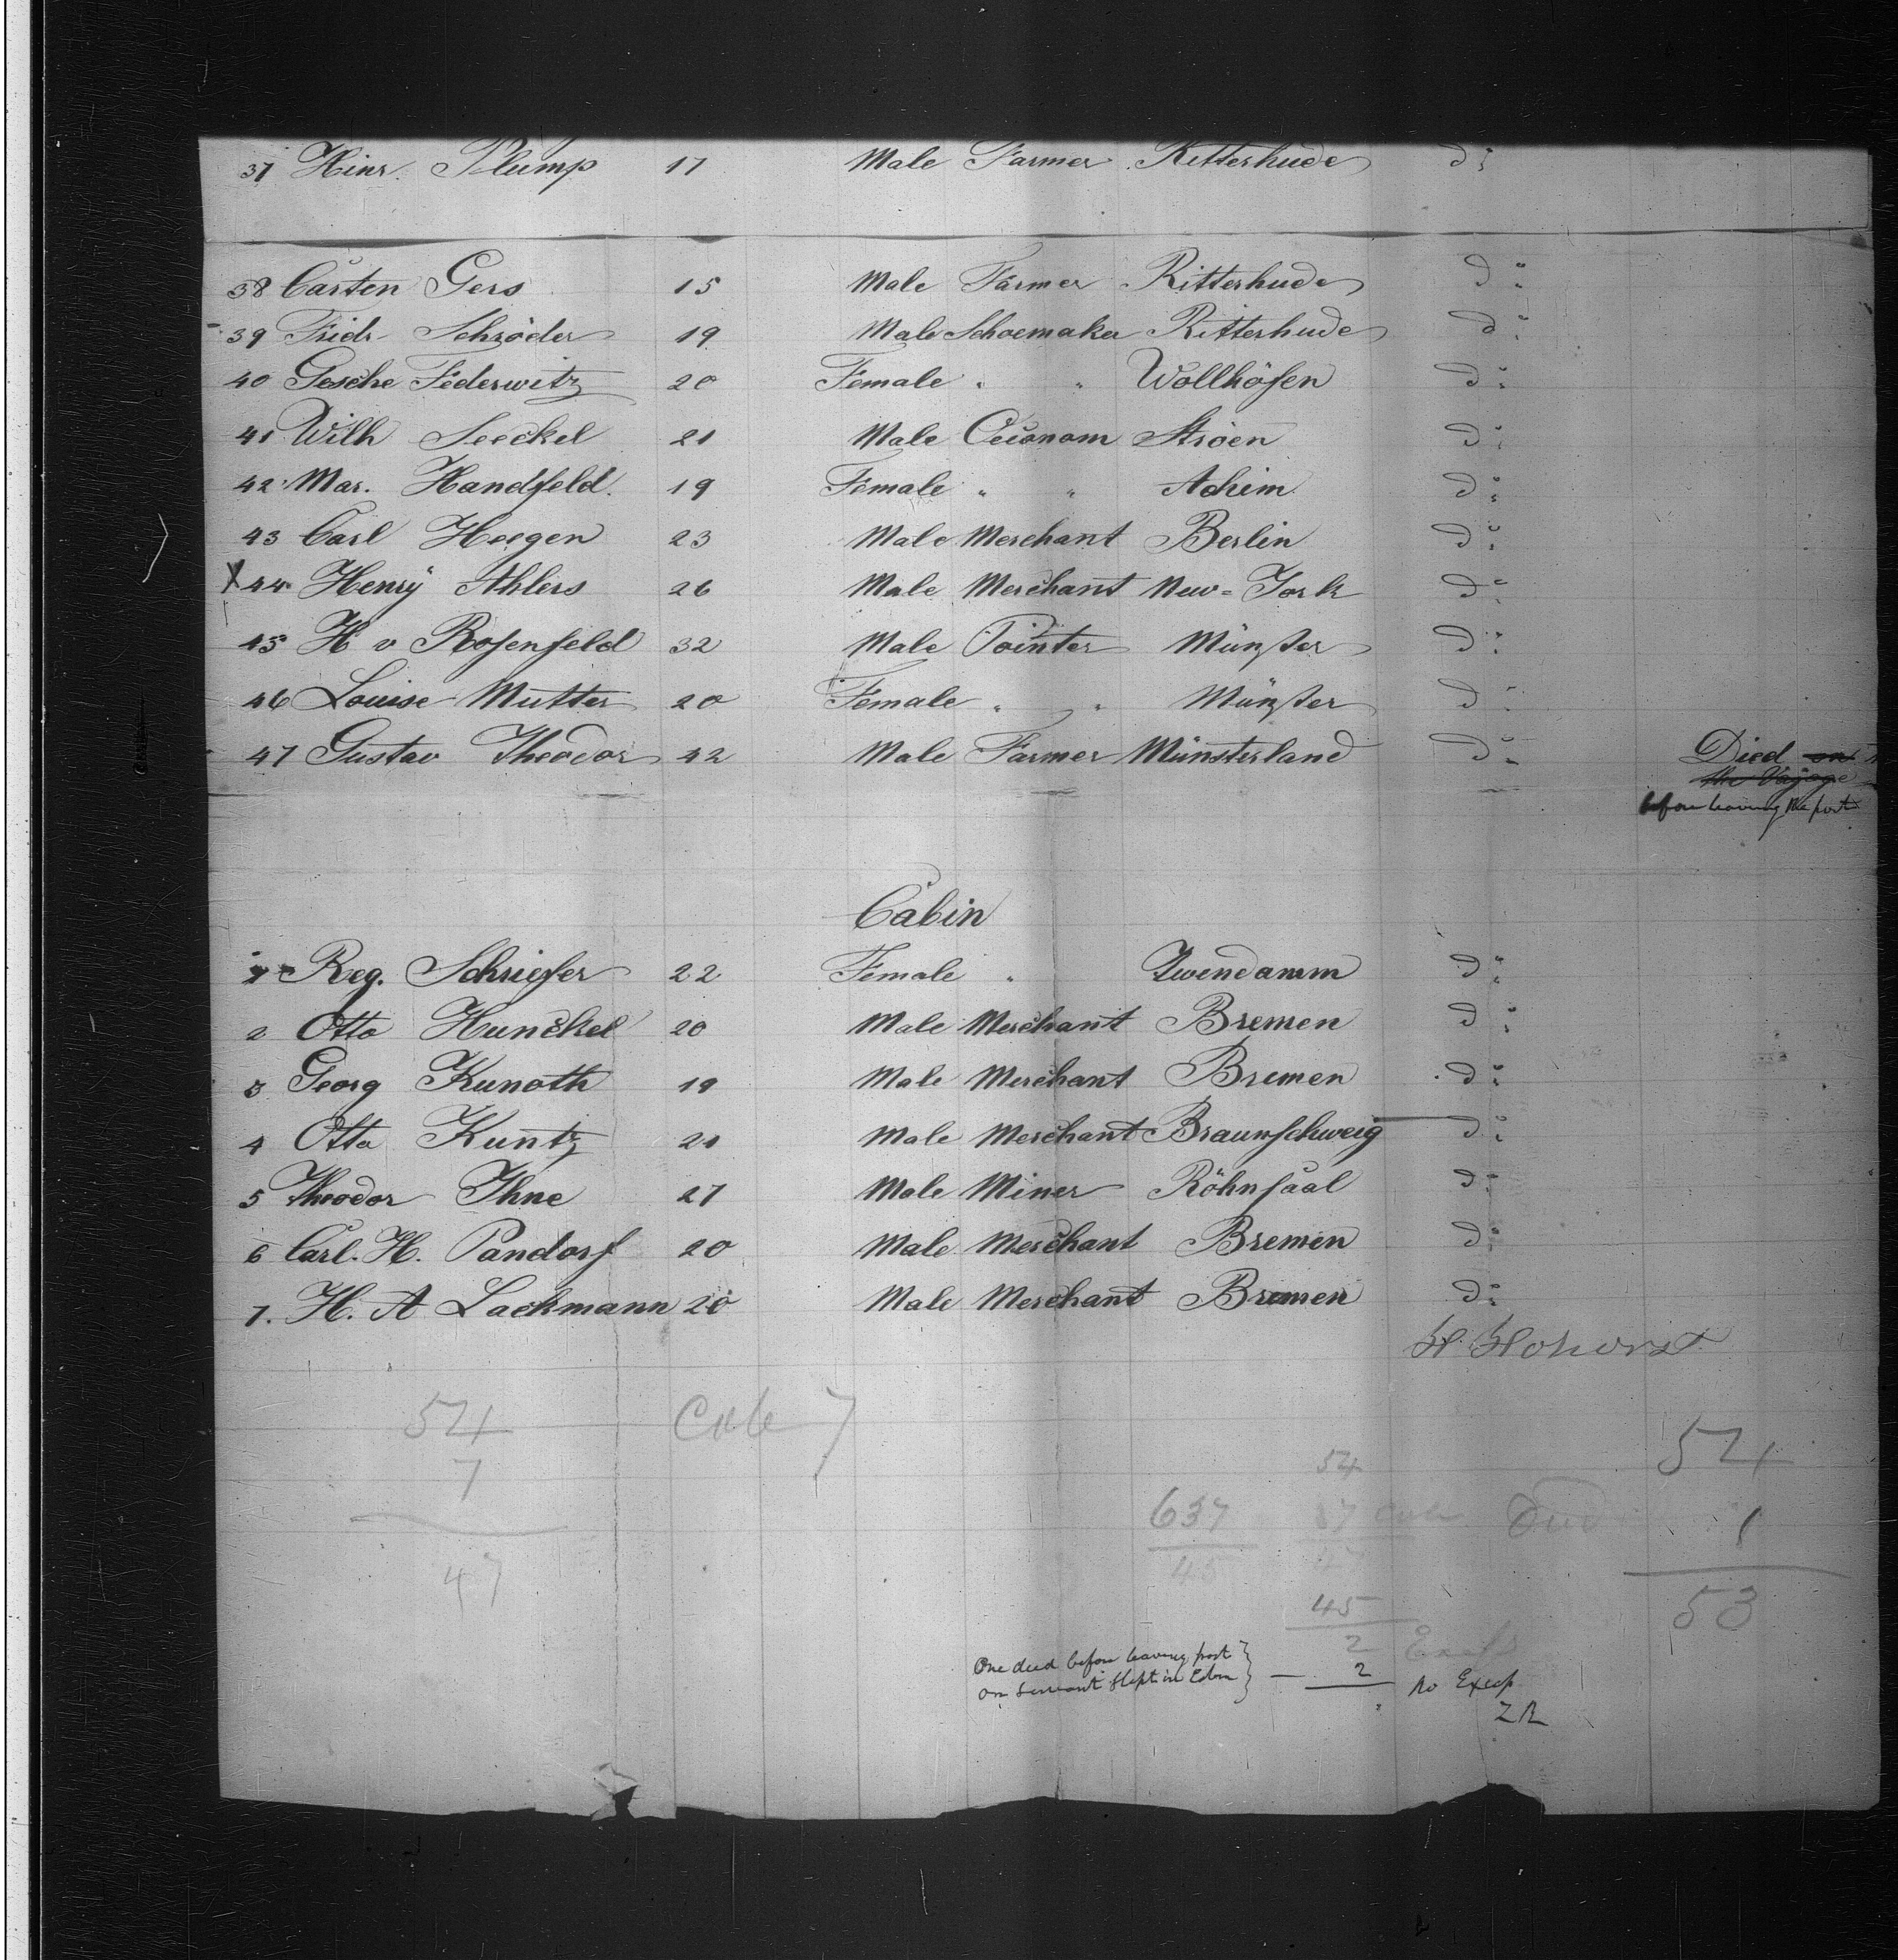 37 Hinr. Plump 17 Male Farmer Ritterhude do
38 Carsten Gers 15 Male Farmer Ritterhude do
39 Fridr Schröder 19 Male Schoemaker Ritterhude do
40 Gesche Federwitz 20 Female " " Wollhöfen do
41 Wilh Seeckel 21 Male Oeconom Ströen do
42 Mar. Handfeld. 19 Female " " Achim do
43 Carl Heegen 23 Male Merchant Berlin do
X 44 Henry Ahlers 26 Male Merchant New-York do
45 H v Rosenfeld 32 Male Pointer Münster do
46 Louise Mutter 20 Female " " Münster do
47 Gustav Theodor 42 Male Farmer Münsterland do Died on
the Voyage
before leaving the port
Cabin
1 Reg. Schriefer 22 Female " Zwendamm do
2 Otto Hunckel 20 Male Merchant Bremen do
3 Georg Kunoth 19 Male Merchant Bremen do
4 Otto Kuntz 21 Male Merchant Braunschweig do
5 Theodor Ihne 27 Male Miner Röhnsaal do
6 Carl. H. Pandorf 20 Male Merchant Bremen do
7. H. A Lackmann 20 Male Merchant Bremen do
54 Cab 7 54
7 54
637 1
47 45 53
45
2
One died before leaving port
on servant slept in 2 no Excess